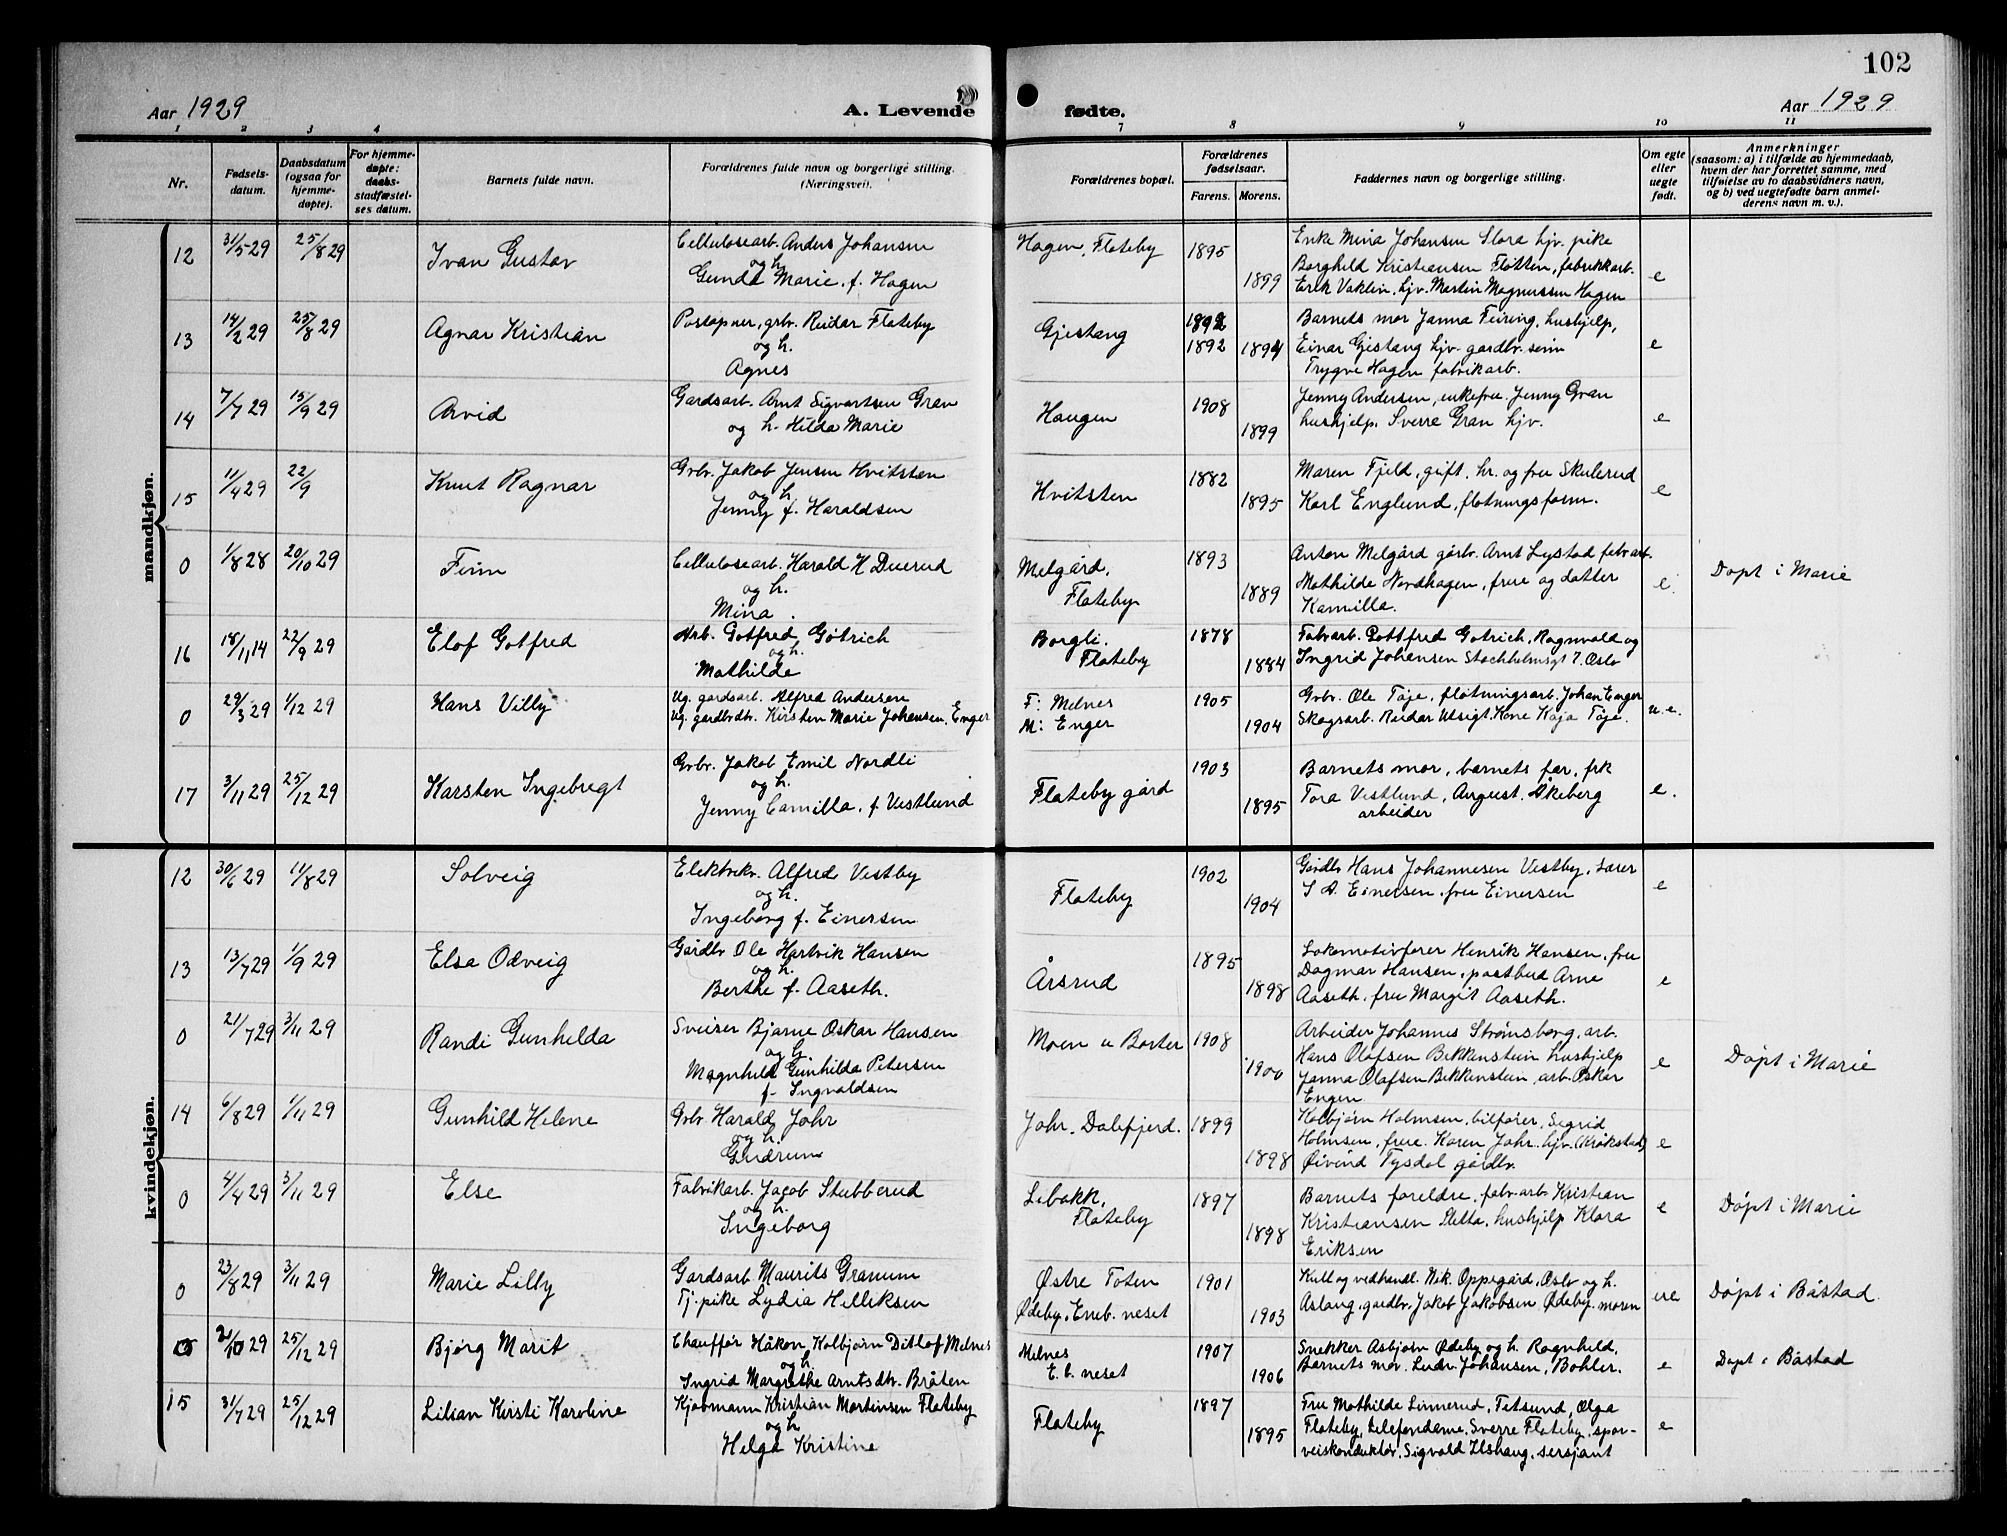 102
Aar 1929
A. Levende fødte.
Aar 1929
1 2 3 4 7 8 9 10 11
Nr.
Fødsels-
datum.
Daabsdatum
(ogsaa for
hjemme-
døpte).
For hjemme-
døpte:
daabs-
stadfæstel-
ses datum.
Barnets fulde navn.
Forældrenes fulde navn og borgerlige stilling.
(Næringsvei).
Forældrenes bopæl.
Forældrenes
fødselsaar.
Farens. Morens.
Faddernes navn og borgerlige stilling.
Om egte
eller
uegte
født.
Anmerkninger
(saasom: a) i tilfælde av hjemmedaab,
hvem der har forrettet samme, med
tilføielse av to daabsvidners navn,
og b) ved uegtefødte barn anmel-
derens navn m. v.).
mandkjøn.
12 31/5 29 25/8 29 Ivan Gustav
Cellulosearb. Anders Johansen
og h.
Gunda Marie, f. Hagen
Hagen, Flateby 1895 1899
Enke Mina Johansen Slora hjv. pike
Borghild Kristiansen Fløtten, fabrikkarb.
Erik Vaklin, hjv. Martin Magnussen Hagen
e
13 14/2 29 25/8 29 Agnar Kristian
Poståpner, grbr. Reidar Flateby
og h.
Agnes
Gjestang 1892
1892 1894
Barnets mor Janna Feiring, hushjelp,
Einar Gjestang hjv. gardbr. sønn
Trygve Hagen fabrikarb.
e
14 7/7 29 15/9 29 Arvid
Gardsarb. Arnt Sigvartsen Gran
og h. Hilda Marie
Haugen 1908 1899
Jenny Andersen, enkefru. Jenny Gran
hushjelp. Sverre Gran hjv.
e
15 11/4 29 22/9 Knut Ragnar
Grbr. Jakob Jensen Hvitsten
og h.
Jenny f. Haraldsen
Hvitsten 1882 1895
Maren Fjeld, gift, hr. og fru Skulerud
Karl Englund, fløtningsform.
e
0 1/8 28 20/10 29 Finn
Cellulosearb. Harald H Duerud
og h.
Mina.
Melgård,
Flateby 1893 1889
Anton Melgård gårbr. Arnt Lystad fabr.arb.
Mathilde Nordhagen, frue og datter
Kamilla.
e.
Døpt i Marie
16 18/11 14 22/9 29 Elof Gotfred
Arb. Gotfred Gøtrich
og h.
Mathilde
Borgli.
Flateby 1878 1884
Fabr.arb. Gottfred Gotrich, Ragnvald og
Ingrid Johansen Stockholmsgt 7. Oslo
0 29/3 29 1/12 29 Hans Villy
Ug. gardsarb. Alfred Andersen
Ug. gardbrdtr. Kirsten Marie Johansen, Enger
F: Melnes
M: Enger
1905 1904
Grbr. Ole Tøje, fløtningsarb. Johan Enger
Skogsarb. Reidar Utsigt. Kone Kaja Tøje.
u.e.
17 3/11 29 25/12 29 Karsten Ingebregt
Grbr. Jakob Emil Nordli
og h.
Jenny Camilla, f Vestlund
Flateby gård 1903 1895
Barnets mor, barnets far, frk
Tora Vestlund, August Åkeberg
arbeider
e.
kvindekjøn.
12 30/6 29 11/8 29 Solveig
Elektrikr. Alfred Vestby
og h.
Ingeborg f. Einersen
Flateby 1902 1904
Gårdbr Hans Johannesen Vestby, Lærer
S A. Einersen, fru Einersen
e
13 13/7 29 1/9 29 Elsa Odveig
Gårdbr Ole Hartvik Hansen
og h.
Berthe f. Aaseth.
Årsrud 1895 1898
Lokomotivfører Henrik Hansen, fru
Dagmar Hansen, postbud Arne
Aaseth, fru Margit Aaseth.
e
0 21/7 29 3/11 29 Randi Gunhilda
Sveiser Bjarne Oskar Hansen
og h.
Magnhild Gunhilda Petersen
f. Ingvaldsen
Moen u Borter 1908 1900
Arbeider Johannes Strønsborg, arb.
Hans Olafsen Bekkenstein hushjelp
Janna Olafsen Bekkenstein, arb. Oskar
Engen
e
Døpt i Marie
14 6/8 29 1/11 29 Gunhild Helene
Grbr Harald Johr
og h.
Gudrun
Johr. Dalefjerd. 1899 1898
Kolbjørn Holmsen, bilfører, Sigrid
Holmsen, frue. Karen Johr. hjv. (Kråkstad)
Øivind Tysdal gårdbr.
e
0 4/4 29 3/11 29 Else
Fabrikarb. Jacob Stubberud
og h.
Ingeborg
Libakk,
Flateby 1897 1898
Barnets foreldre, fabr.arb Kristian
Kristiansen Sletta, hushjelp Klara
Eriksen
e
Døpt i Marie
0 23/8 29 3/11 29 Marie Lilly
Gardsarb Maurits Granum
Tj. pike Lydia Helliksen
Østre Toten
Ødeby, Eneb. neset
1901 1903
Kull og vedhandl. Nik. Oppegård, Oslo og h.
Aslaug, gardbr. Jakob Jakobsen Ødeby, moren
ue
Døpt i Båstad.
0 2/10 29 25/12 29 Bjørg Marit
Chauffør Håkon Kolbjørn Ditlof Melnes
og h.
Ingrid Margrethe Arntsdtr. Bråten
Melnes
E. b. neset 1907 1906
Snekker Asbjørn Ødeby og h. Ragnhild.
Barnets mor. Ludv. Johansen, Bohler.
e
Døpt i Båstad
15 31/7 29 25/12 29 Lilian Kirsti Karoline
Kjøbmann Kristian Martinsen Flateby
og h.
Helga Kristine
Flateby 1897 1895
Fru Mathilde Linnerud, Fetsund, Olga
Flateby, Lilefondame, Sverre Flateby, spor-
veiskonduktør, Sigvald Ilshaug, sersjant
e